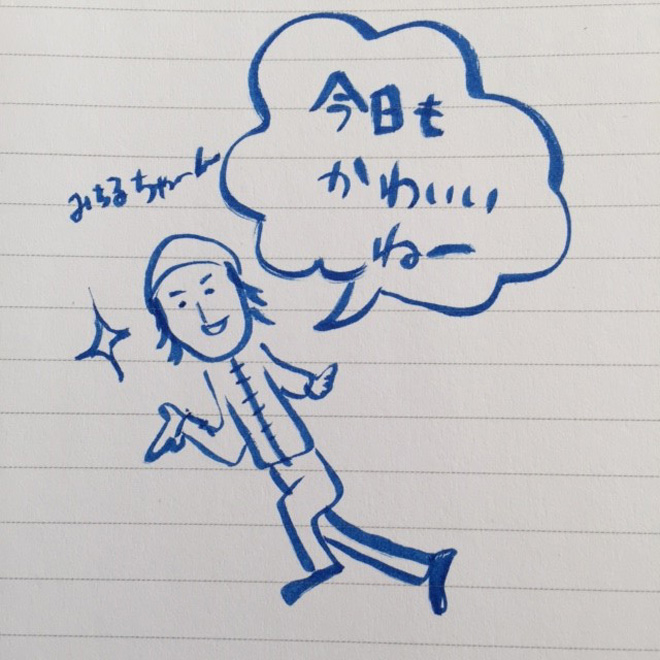 今日も
かわいい
ねー
みちるちゃーん